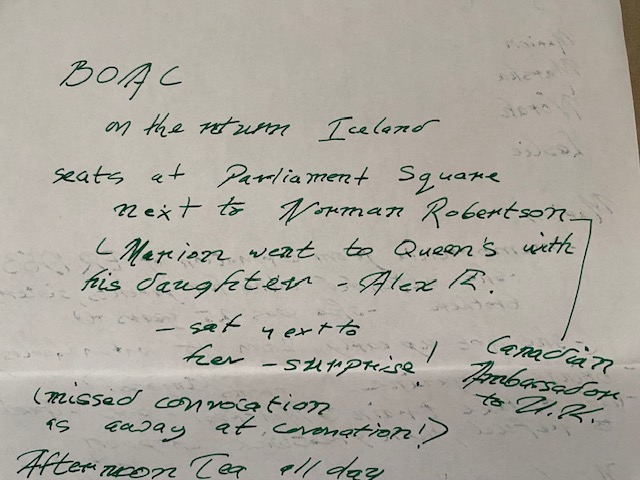 BOAC
on the return Iceland
seats at Parliament Square
next to Norman Robertson
( Marion went to Queen's with
his daughter - Alex R.
- sat next to
her - surprise!
Canadian
Ambassador
to U.K.
(missed convocation
as away at coronation!)
Afternoon Tea all day